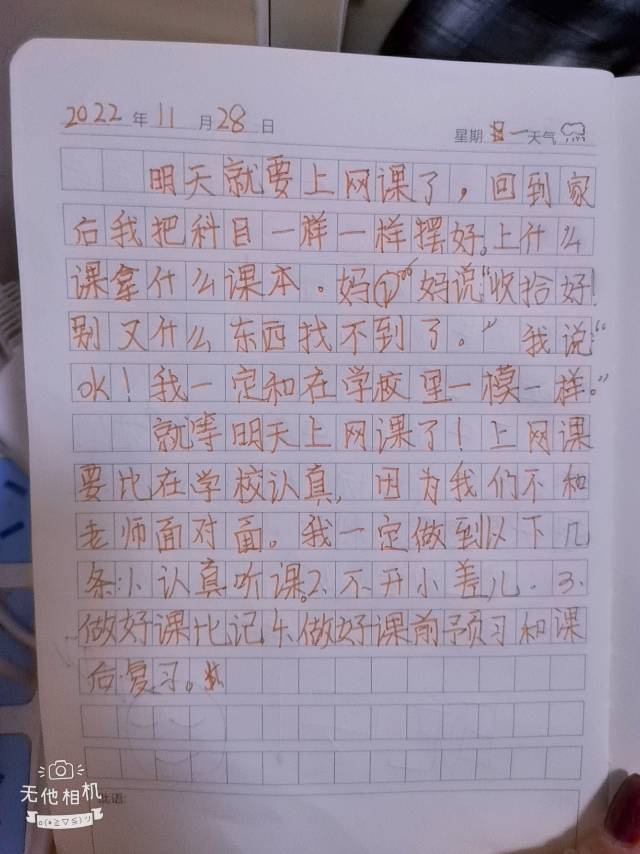 2022年11月28日 星期一天气
明天就要上网课了，回到家
后我把科目一样一样摆好。上什么
课拿什么课本．妈妈说“收拾好！
别又什么东西找不到了。”我说“
OK！我一定和在学校里一模一样。”
就等明天上网课了！上网课
要比在学校认真，因为我们不和
老师面对面。我一定做到以下几
条：1、认真听课。2、不开小差儿．3、
做好课比记4、做好课前预习和课
后复习。
批语：
无他相机